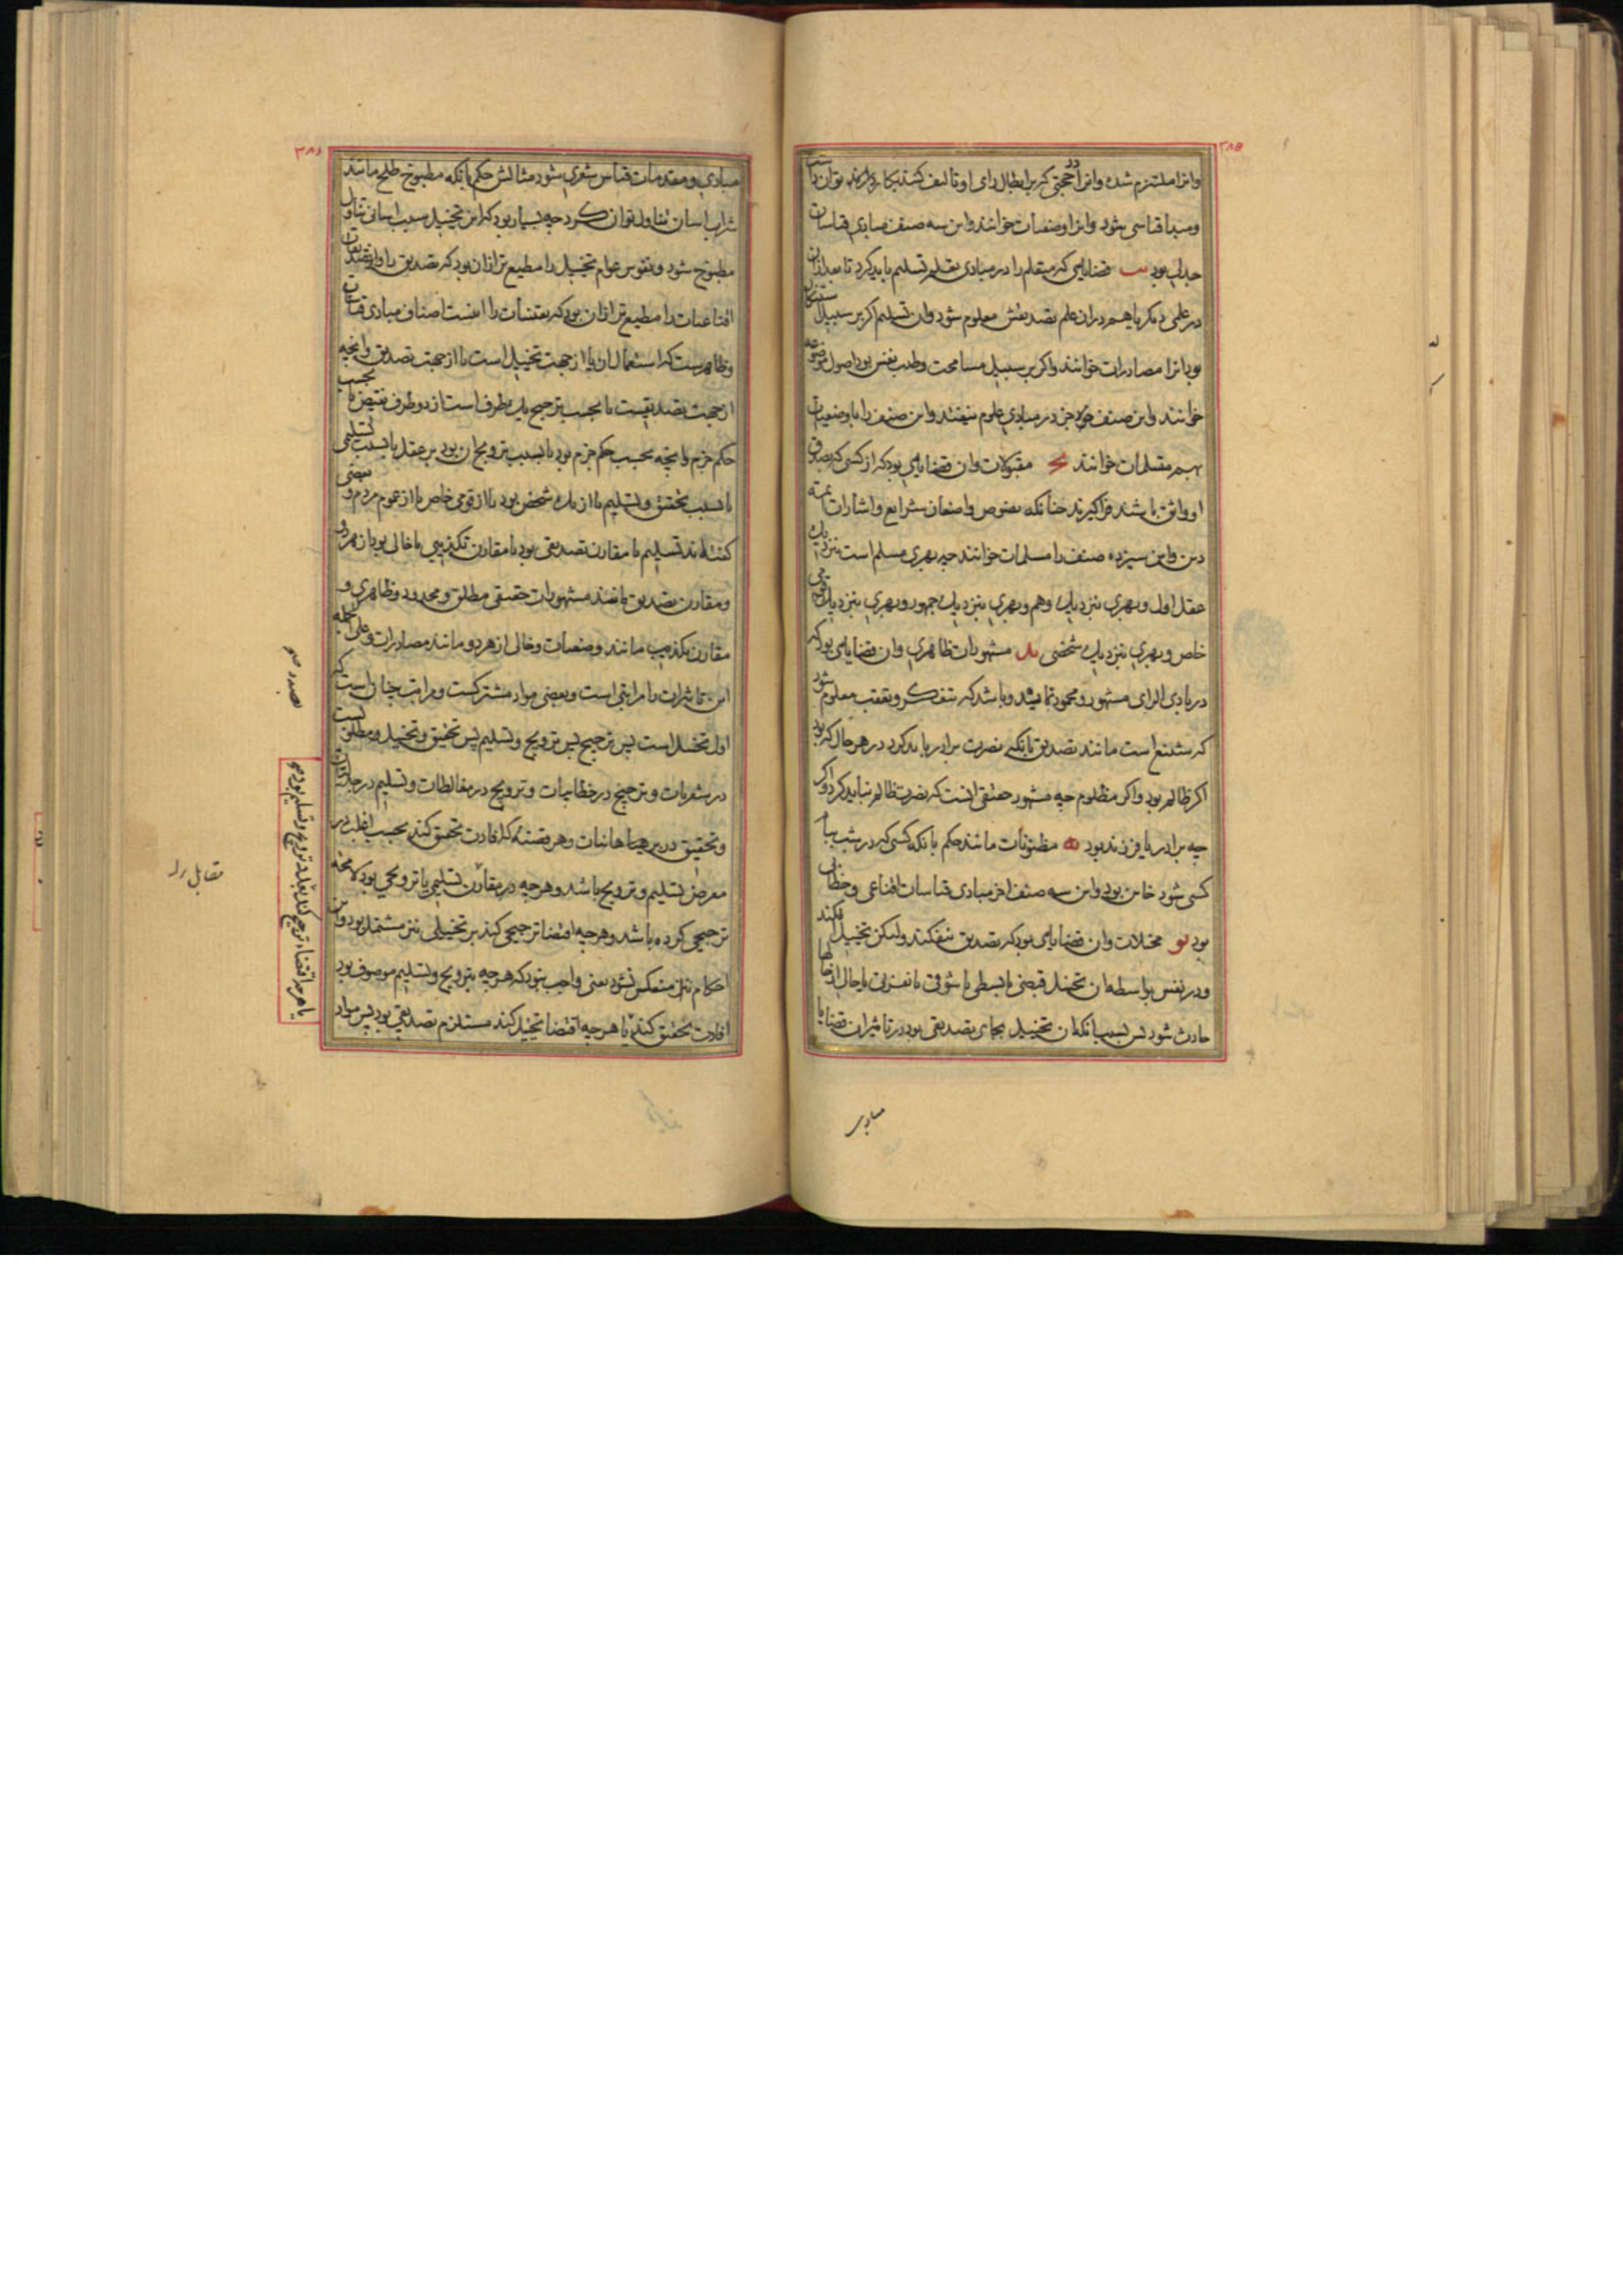 ۳۸۵
وانرا ملتزم شده وانرا در حجتی که بر ابطال رای او تالیف کنند بکار دارند توان داشت
ومبدا قیاسی شود وانرا وضعیات خوانند واین سه صنف مبادی قیاسات
جدلی بود یب قضایایی که متعلم را در مبادی تعلم تسلیم باید کرد تا بعد ازان
در علمی دیگر یا هم دران علم تصدیقش معلوم شود وان تسلیم اگر بر سبیل استنکار
بود انرا مصادرات خوانند واکر بر سبیل مسامحت وطیب نفس بود اصول موضوعه
خوانند واین صنف جز در مبادی علوم نیفتد واین صنف را با وضعیات
بهم متسلمات خوانند یج مقبولات وان قضایایی بود که از کسی که بصدق
او واثق باشند فراکیرند چنانکه نصوص واضعان شرایع واشارات ائمه
دین واین سیزده صنف را مسلمات خوانند چه بهری مسلم است نزدیک
عقل اول وبهری نزدیک وهم وبهری نزدیک جمهور وبهری نزدیک قومی
خاص وبهری نزدیک شخصی ید مشهورات ظاهری وان قضایایی بود که
در بادی الرای مشهور ومحمود نماید وباشد که بتفکر وتعقب معلوم شود
که شنیع است مانند تصدیق بانکه نصرت برادر باید کرد در هر حال که بود
اکر ظالم بود واکر مظلوم چه مشهور حقیقی انست که نصرت ظالم نباید کرد واکر
چه برادر یا فرزند بود یه مظنونات مانند حکم بانکه کسی که در شب بباب
کسی شود خاین بود واین سه صنف اخر مبادی قیاسات اقناعی وخطابی
بود یو مخیلات وان قضایایی بود که تصدیق نیفکند ولیکن تخییل افکند
ودر نفس بواسطه ان تخییل قبضی یا بسطی یا شوقی یا نفرتی یا حالی از حالها
حادث شود پس بسبب انکه ان تخییل بجای تصدیقی بود در تاثیر ان قضایا
مبادی
۳۸۶
مبادی ومقدمات قیاس شعری شود مثالش حکم بانکه مطبوخ طلح مانند
شراب اسان تناول توان کرد چه بسیار بود که این تخییل سبب اسانی تناول
مطبوخ شود ونفوس عوام تخییل را مطیع تر ازان بود که تصدیق را وتصدیقات
اقناعیات را مطیع تر ازان بود که یقینیات را اینست اصناف مبادی قیاسات
وظاهرست که استعمال ان یا از جهت تخییل است یا از جهت تصدیق وانچه
از جهت تصدیقست یا بحسب ترجیح یک طرف است از دو طرف نقیض یا بحسب
حکم جزم وانچه بحسب حکم جزم بود یا بسبب ترویج ان بود بر عقل یا بسبب تسلیمی
یا بسبب تحقیق وتسلیم یا از یک شخص بود یا از قومی خاص یا از عموم مردم وبعضی
گفته‌اند تسلیم یا مقارن تصدیقی بود یا مقارن تکذیبی یا خالی بود از هر دو
ومقارن تصدیق مانند مشهورات حقیقی مطلق ومحدود وظاهری و
مقارن تکذیب مانند وضعیات وخالی از هر دو مانند مصادرات وعلی الجمله
این تاثیرات را مراتبی است وبعضی مواد مشترکست ومراتب چنان است که
اول تخییل است پس ترجیح پس ترویج وتسلیم پس تحقیق وتخییل ومطلق است
در شعریات وترجیح در خطابیات وترویج در مغالطات وتسلیم در جدلیات
وتحقیق در برهانیات وهر قضیه که افادت تحقیق کند بحسب اغلب در
معرض تسلیم وترویج باشد وهرچه در مقارن تسلیمی یا ترویجی بود لامحاله
ترجیحی کرده باشد وهرچه اقتضا ترجیحی کند بر تخییلی نیز مشتمل بود واین
احکام نیز منعکس نشود یعنی واجب نبود که هرچه بترویج وتسلیم موصوف بود
افادت تحقیق کند یا هرچه اقتضا تخییل کند مستلزم تصدیقی بود پس مواد
یا هرچه اقتضاء ترجیح کند مفید ترویج وتسلیم بود
مقابل